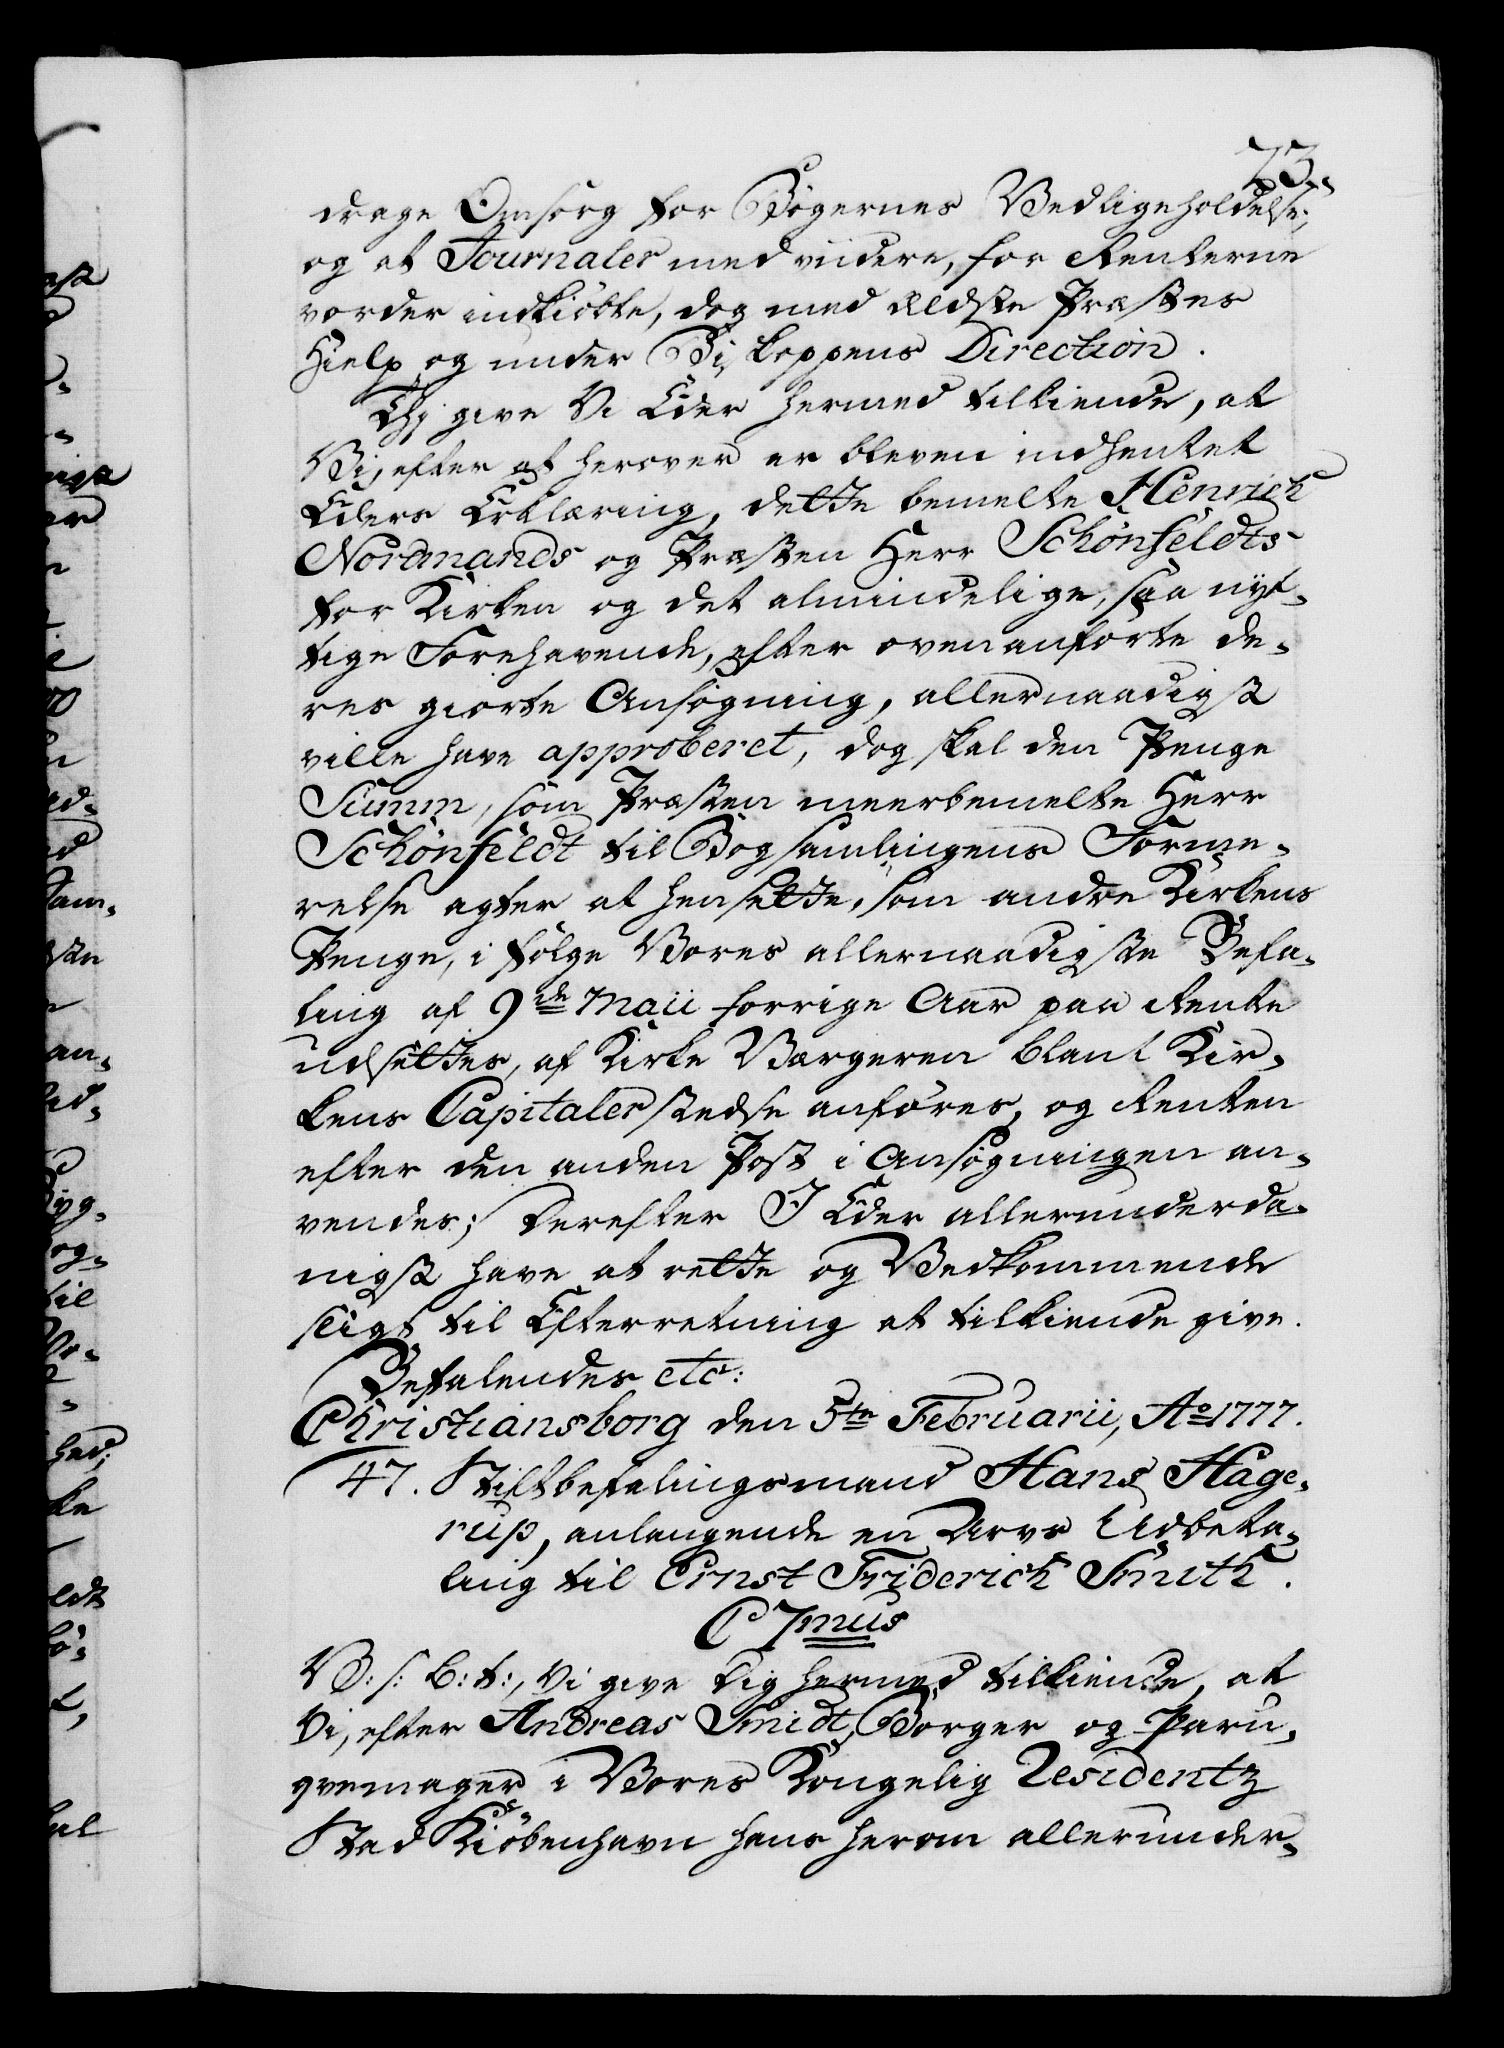 73.
drage Omsorg for Bøgernes Vedligeholdelse,
og at Journaler med viidere, for Renterne
vorder indkiøbte, dog med ældste Præstes
Hielp og under Biskoppens Direction.
Thj give Vi Eder hermed tilkiende, at
Vi, efter at herover er bleven indhentet
Eders Erklæring, dette bemelte Henrich
Nordmands og Præsten Herr Schønfeldts
for Kirken og det almindelige, saa nyt-
tige Forehavende, efter ovenanførte de-
res giorte Ansøgning, allernaadigst
ville have approberet, dog skal den Penge
Summ, som Præsten meerbemelte Herr
Schønfeldt til Bogsamlingens Forme-
relse agter at hensette, som andre Kirkens
Penge, i følge Vores allernaadigste Befa-
ling af 9de Maii forrige Aar paa Rente
udsettes, af Kirke Værgeren blant Kir-
kens Capitaler stedse anføres, og Renten
efter den anden Post i Ansøgningen an-
vendes; Derefter I Eder allerunderda-
nigst have at rette og Vedkommende
sligt til Efterretning at tilkiende give.
Befalendes etc:
Christiansborg den 5te Februarii, Ao 1777.
47. Stiftbefalingsmand Hans Hage-
rup, anlangende en Arvs Udbeta-
ling til Ernst Friderich Smith.
C 7mus
V: s: b: t:, Vi give dig hermed tilkiende, at
Vi, efter Andreas Smidt, Borger og Paru-
qvemager i Vores Kongelig Residentz
Stad Kiøbenhavn hans herom allerunder-